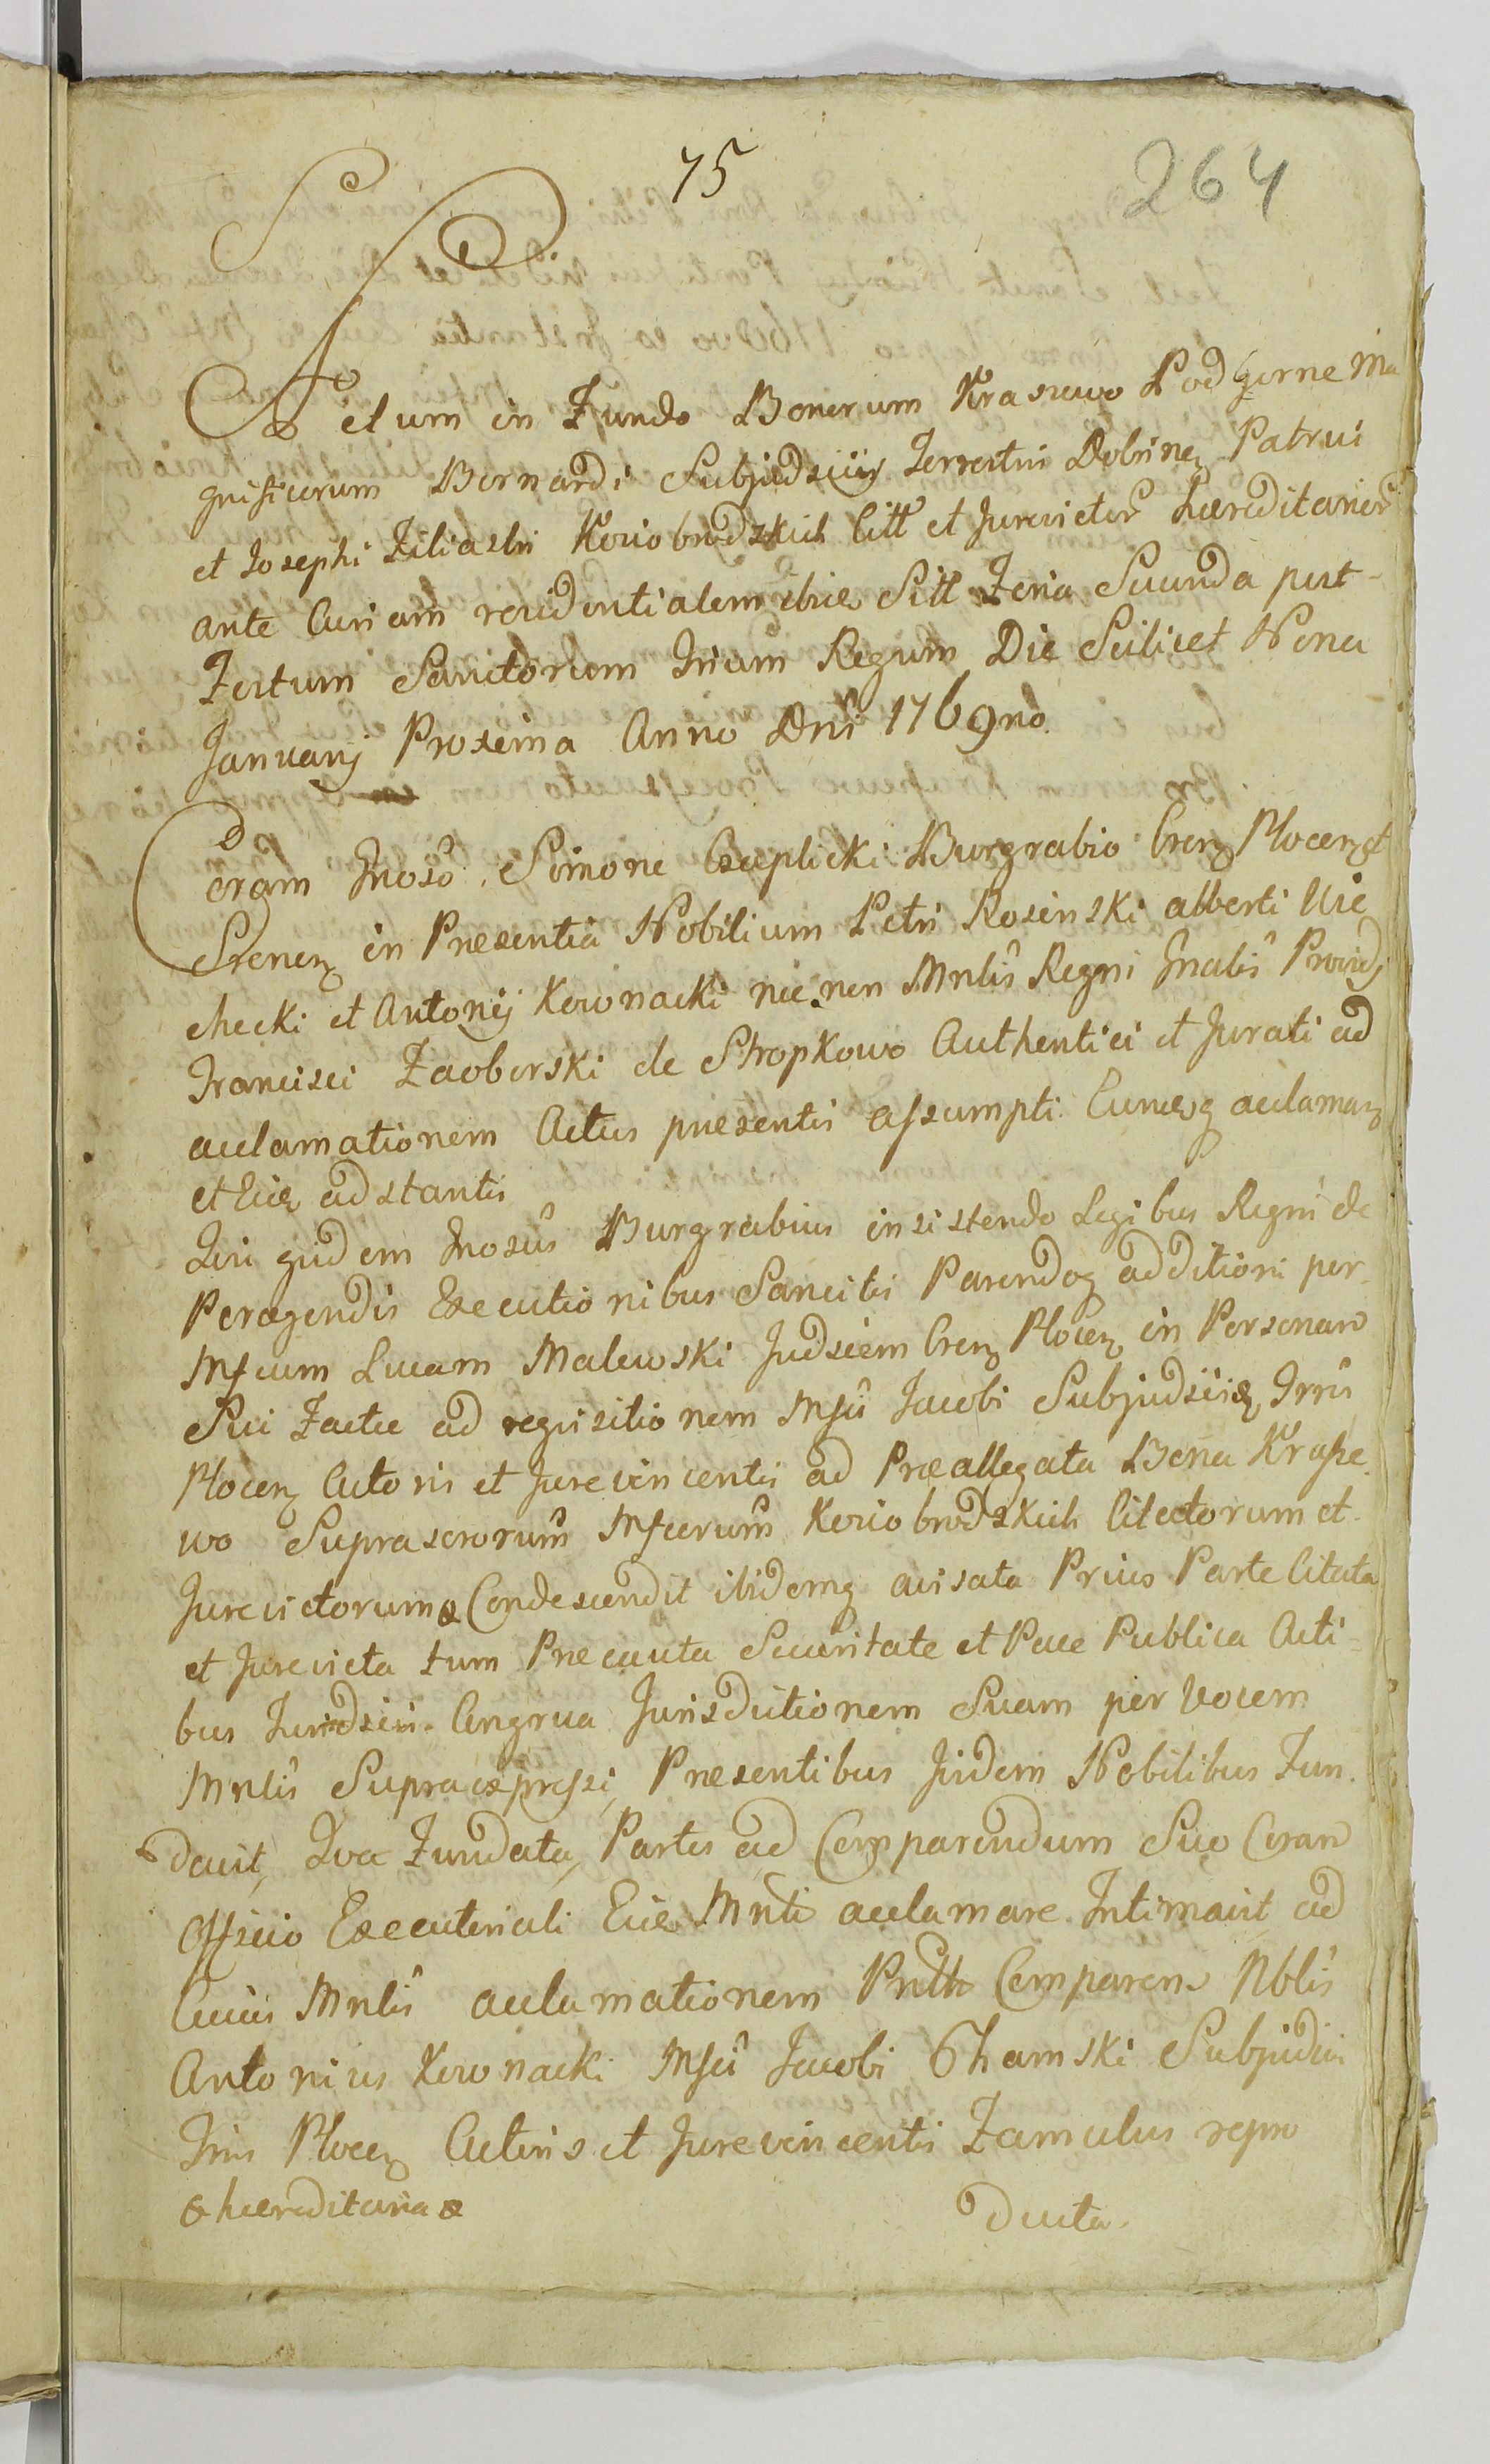 75
264
Actum in Fundo Bonorum Kraszewo Podgorne Ma
gnificorum Bernardi Subjudicis Terrestris Dobrinen Patrui
et Josephi Filiastri Kosiobrodzkich Citt et Jurevictor Haereditarior
ante Curiam residentialem ibid Sitt Feria Secunda post
Festum Sanctorum Trium Regum Die Scilicet Nona
Januarij Proxima Anno Dni 1769no.
Coram Gnoso Simone Czaplicki Burgrabio Cren Plocen et
Srenen in Presentia Nobilium Petri Rosinski Alberti Uie
checki et Antonij Kownacki nec non Mnlis Regni Gnalis Providi
Francisci Zaoborski de Stropkowo Authentici et Jurati ad
acclamationem Actus presentis assumpti Euncq acclaman
et Eidem adstantis
Qui quidem Gnosus Burgrabius insistendo Legibus Regni de
Peragendis Executionibus Sancitis Parendoq additioni per
Mfcum Lucam Malewski Judicem Cren Plocen in Personam
Sui Factae ad requisitionem Mfci Jacobi Subjudicis Trris
Plocen Actoris et Jurevincentis ad Praeallegata Bona Krasze
wo Suprascrorum Mfcorum Kosiobrodzkich Citatorum et
Jurevictorum & Condescendit ibidemq avisata Prius Parte Citata
et Jurevicta tum Precauta Securitate et Pace Publica Acti=
bus Juridicis Congrua Jurisdictionem Suam per Vocem
Mnlis Supraexpressi, Presentibus Iisdem Nobilibus Fun
davit, Qva Fundata, Partes ad Comparendum Suo Coram
Officio Executoriali Eidem Mnli acclamare Intimavit ad
Cuius Mnlis acclamationem Prntr Comparens Nblis
Antonius Kownacki Mfci Jacobi Chamski Subjudicis
Trris Plocen Actoris et Jurevincentis Famulus repro
& haereditaria &
Ducta.